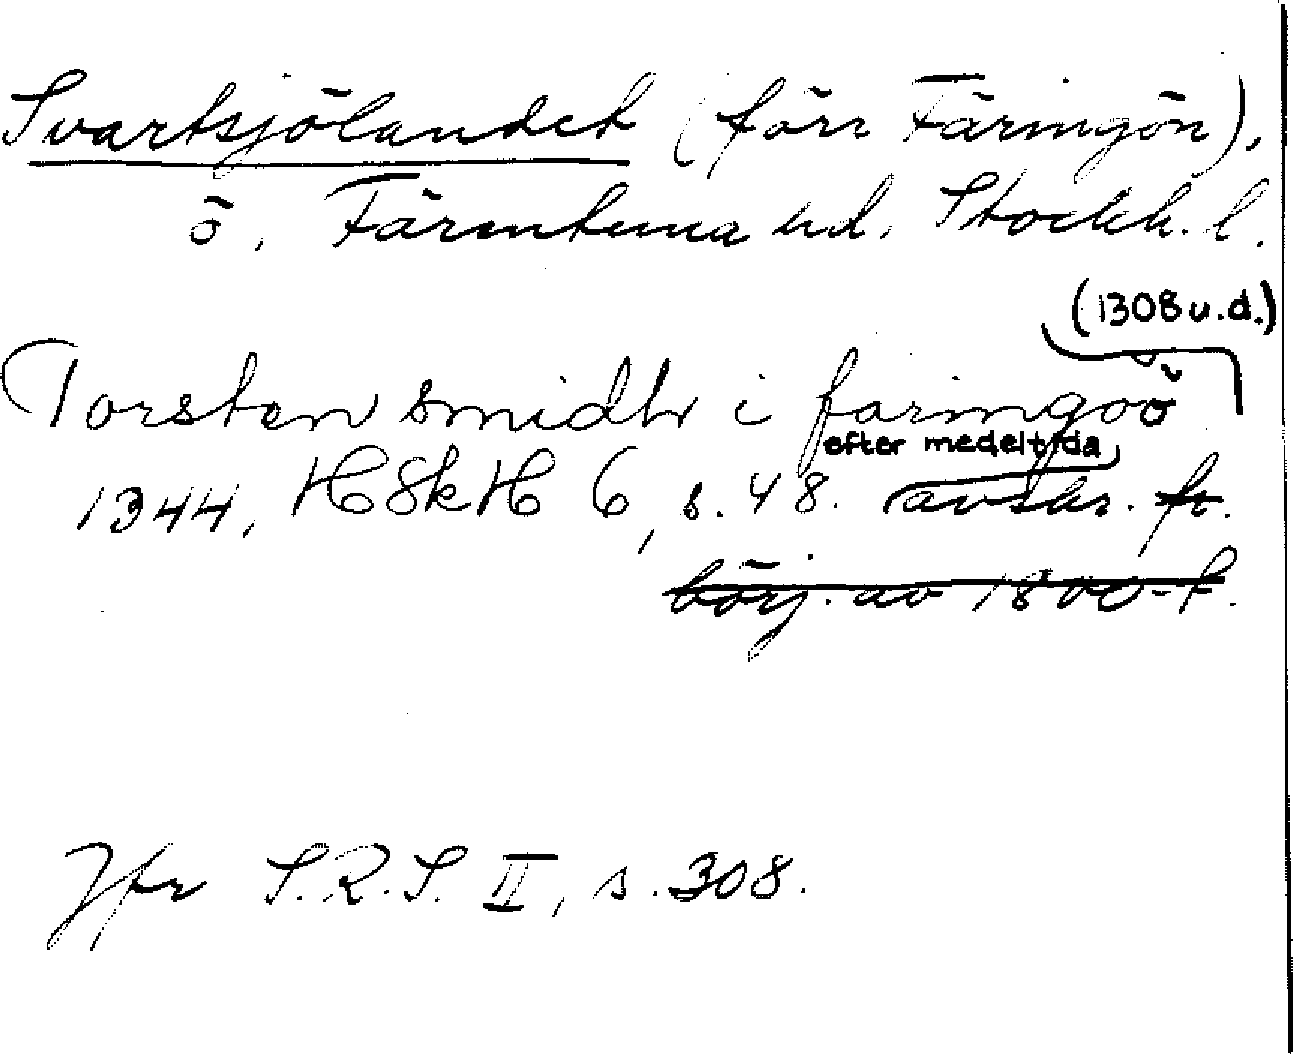 Svartsjölandet (förr Färingön),
ö, Färentuna hd, Stockh. l.
(1308 u.d.)
Torsten smidh i faringoö
efter medeltida
1344, HSkH 6, s. 48. avskr. fr.
börj. av 1800-t.
Jfr S.R.S. II, s. 308.